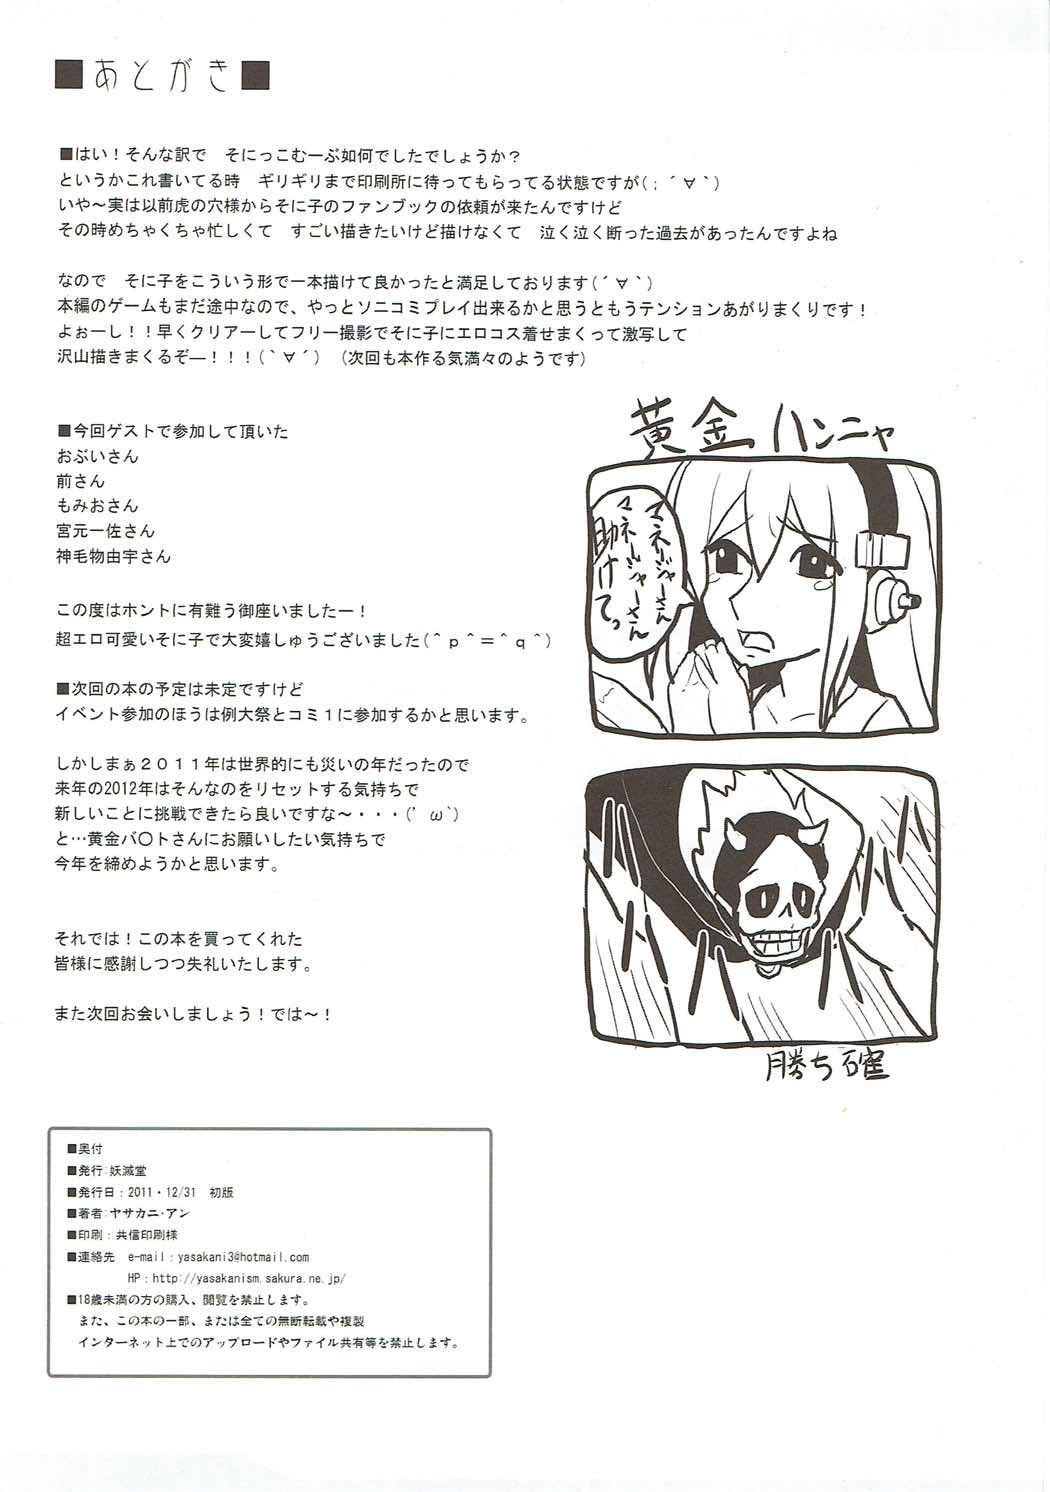 ■あとがき■
■はい！そんな訳で　そにっこむーぶ如何でしたでしょうか？
というかこれ書いてる時　ギリギリまで印刷所に待ってもらってる状態ですが(；´∀｀)
いや～実は以前虎の穴様からそに子のファンブックの依頼が来たんですけど
その時めちゃくちゃ忙しくて　すごい描きたいけど描けなくて　泣く泣く断った過去があったんですよね
なので　そに子をこういう形で一本描けて良かったと満足しております(´∀｀)
本編のゲームもまだ途中なので、やっとソニコミプレイ出来るかと思うともうテンションあがりまくりです！
よぉーし！！早くクリアーしてフリー撮影でそに子にエロコス着せまくって激写して
沢山描きまくるぞ―！！！(｀∀´)　(次回も本作る気満々のようです)
■今回ゲストで参加して頂いた
おぶいさん
前さん
もみおさん
宮元一佐さん
神毛物由宇さん
この度はホントに有難う御座いましたー！
超エロ可愛いそに子で大変嬉しゅうございました(＾ｐ＾＝＾ｑ＾)
■次回の本の予定は未定ですけど
イベント参加のほうは例大祭とコミ１に参加するかと思います。
しかしまぁ２０１１年は世界的にも災いの年だったので
来年の2012年はそんなのをリセットする気持ちで
新しいことに挑戦できたら良いですな～・・・(’ω｀)
と…黄金バ〇トさんにお願いしたい気持ちで
今年を締めようかと思います。
それでは！この本を買ってくれた
皆様に感謝しつつ失礼いたします。
また次回お会いしましょう！では～！
黄金ハンニャ
マネージャーさん
マネージャーさん
助けてっ
勝ち確
■奥付
■発行：妖滅堂
■発行日：2011・12/31　初版
■著者：ヤサカニ・アン
■印刷：共信印刷様
■連絡先　e-mail：yasakani3@hotmail.com
HP：http://yasakanism.sakura.ne.jp/
■18歳未満の方の購入、閲覧を禁止します。
また、この本の一部、または全ての無断転載や複製
インターネット上でのアップロードやファイル共有等を禁止します。